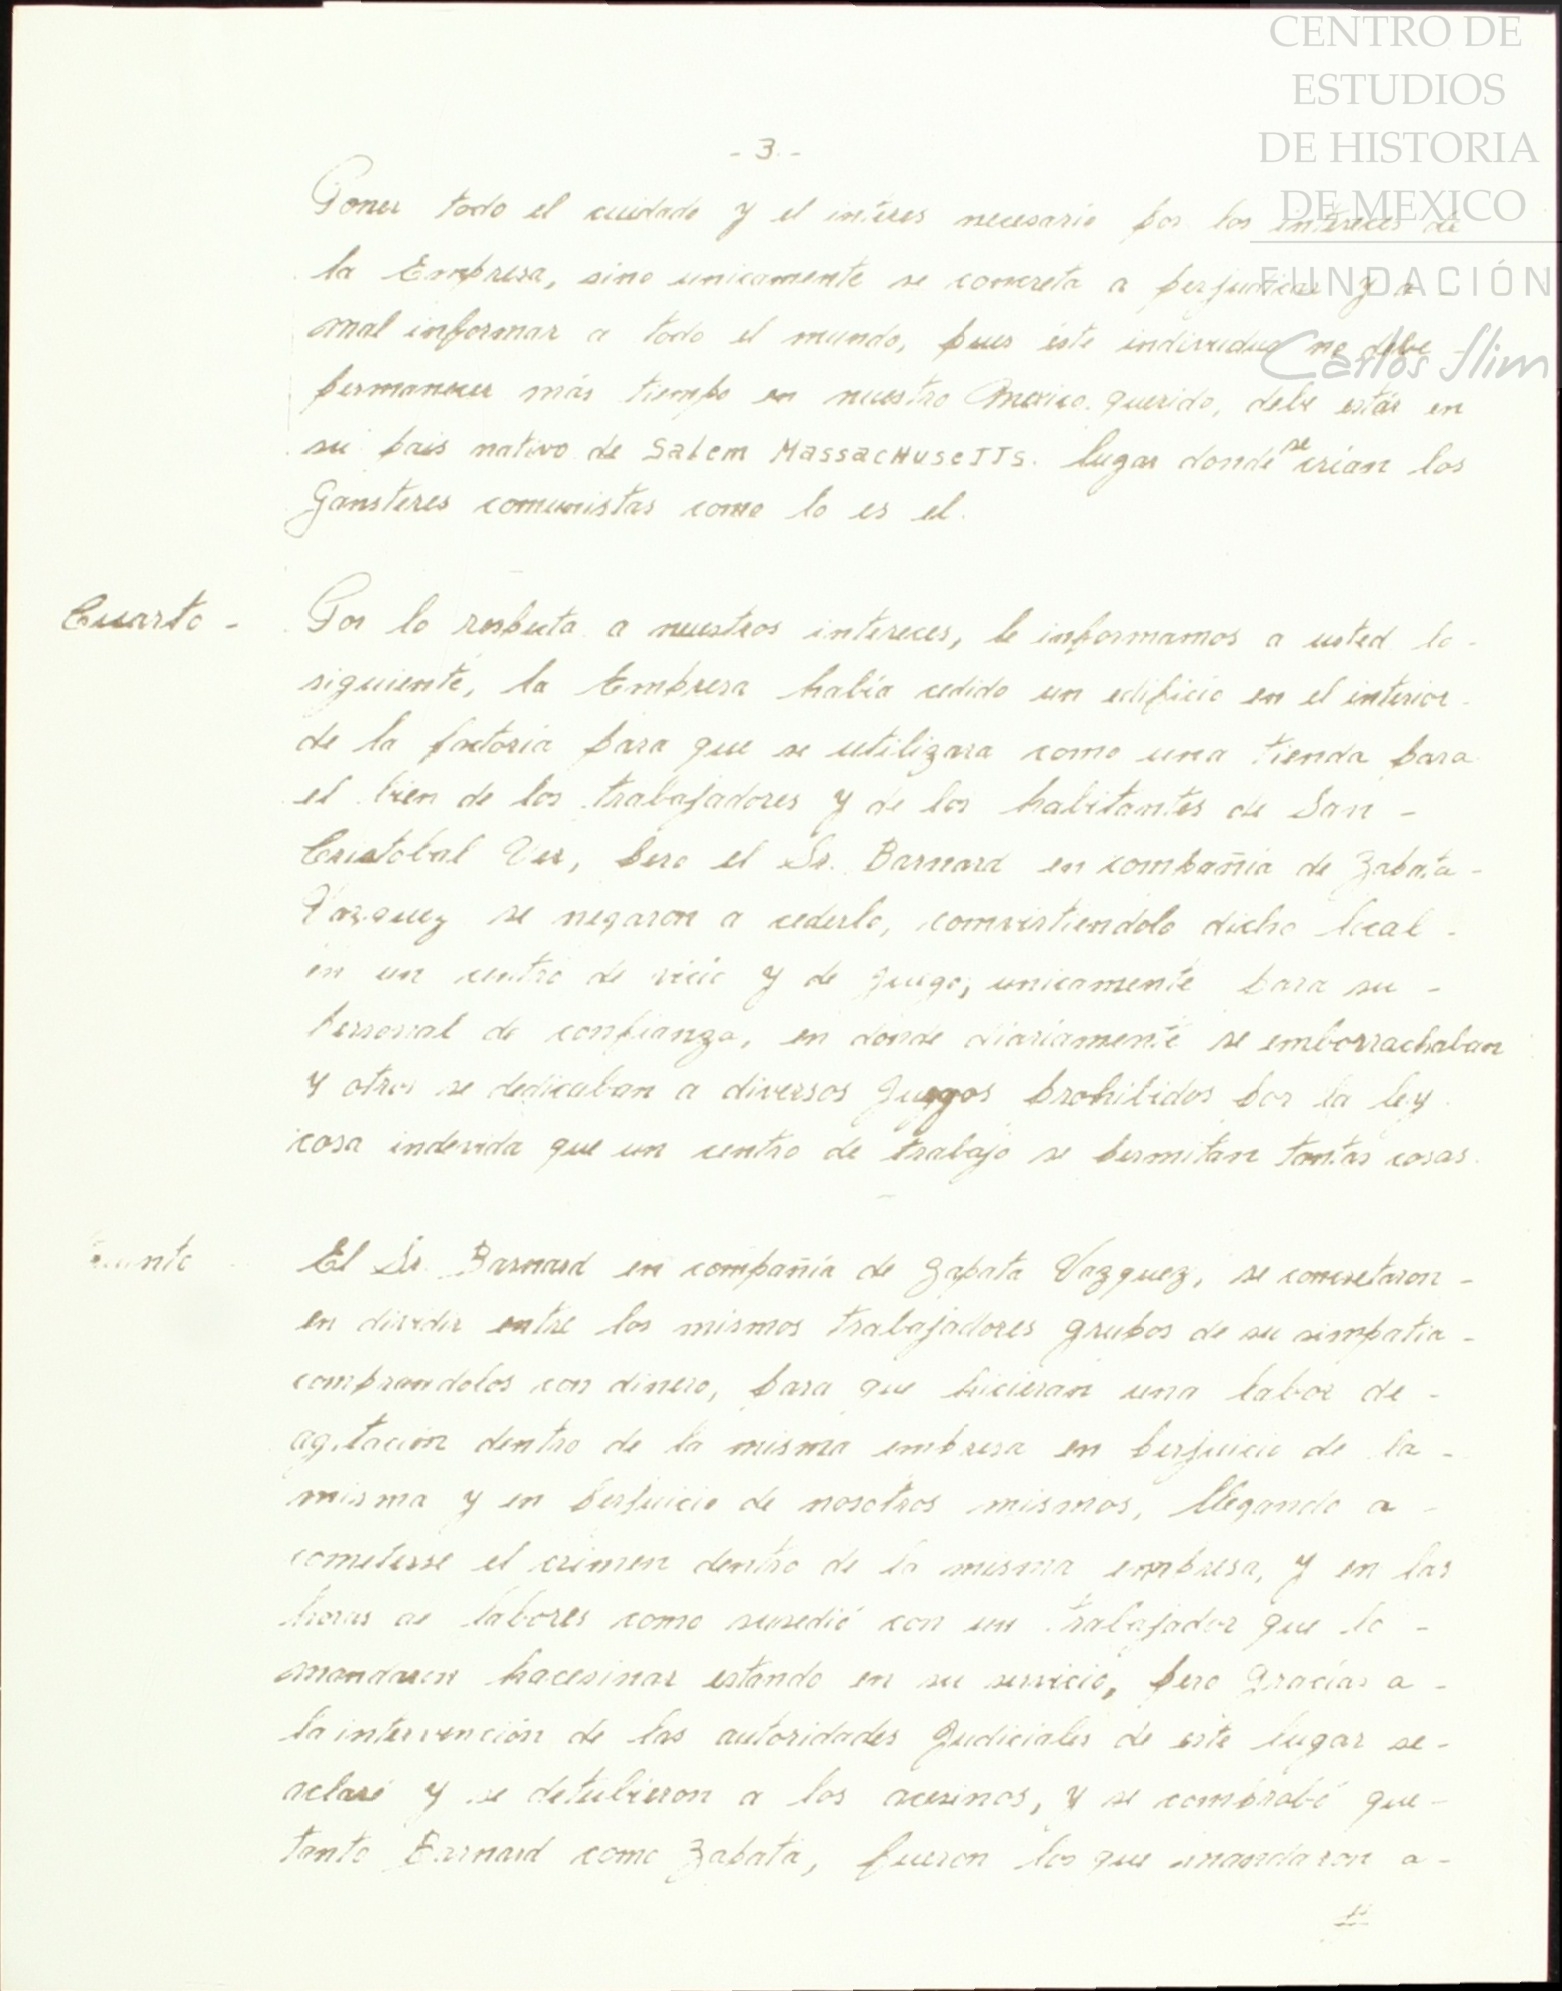 CENTRO DE
ESTUDIOS
DE HISTORIA
DE MEXICO
FUNDACIÓN
Carlos Slim
- 3. -
Poner todo el cuidado y el interes necesario por los intereces de
la Empresa, sino unicamente se concreta a perjudicar y a
mal informar a todo el mundo, pues éste individuo no debe
permanecer más tiempo en nuestro Mexico querido, debe estár en
su pais nativo de Salem Massachusetts. lugar donde se crian los
Gansteres comunistas como lo es el.
Cuarto - Por lo respecta a nuestros intereces, le informamos a usted lo -
siguiente, la Empresa había cedido un edificio en el interior -
de la factoria para que se utilizara como una tienda para
el bien de los trabajadores y de los habitantes de San -
Cristobal Ver, pero el Sr. Barnard en compañia de Zapata -
Vazquez se negaron a cederlo, comvirtiendolo dicho local -
en un centro de vicio y de juego, unicamente para su -
personal de confianza, en donde diariamente se emborrachaban
y otros se dedicaban a diversos juegos prohibidos por la ley.
cosa indevida que un centro de trabajo se permitan tantas cosas.
Quinto El Sr. Barnard en compañia de Zapata Vazquez, se concretaron -
en dividir entre los mismos trabajadores grupos de su simpatia -
comprandolos con dinero, para que hicieran una labor de -
agitación dentro de la misma empresa en perjuicio de la -
misma y en perjuicio de nosotros mismos, llegando a -
cometerse el crimen dentro de la misma empresa, y en las
horas de labores como susedió con un trabajador que lo -
mandaron hacesinar estando en su servicio, pero gracias a -
la intervención de las autoridades judiciales de este lugar se -
aclaró y se detubieron a los acesinos, y se comprobó que -
tanto Barnard como Zapata, fueron los que mandaron a -